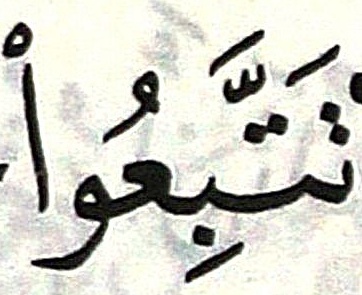 تَتَّبِعُواْ